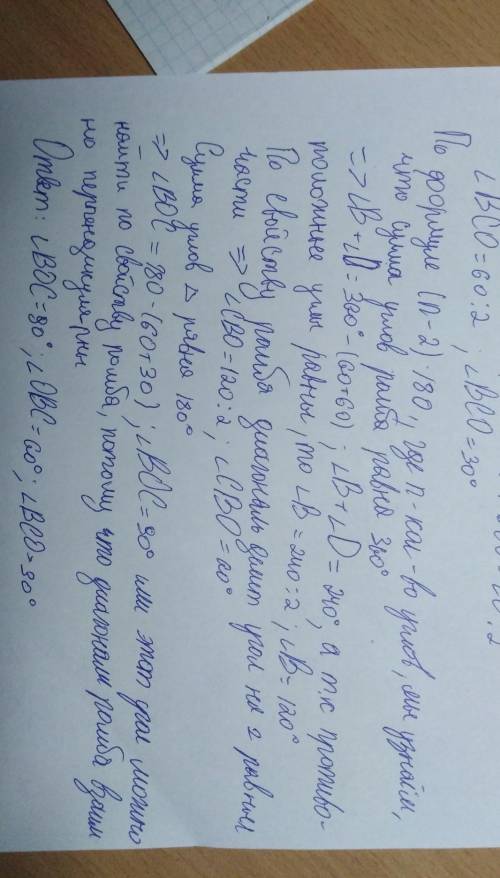 ∠BCO=60:2 ; ∠BCO=30°
По формуле (n-2)·180, где n-кол-во углов, мы узнаём,
что сумма углов ромба равна 360°
=> ∠B+∠D=360°-(60+60) ; ∠B+∠D=240°, а т.к противо-
положные углы равны, то ∠B=240:2 ; ∠B=120°
По свойству ромба диагональ делит угол на 2 равные
части => ∠CBO=120:2 ; ∠CBO=60°
Сумма углов △ равна 180°
=> ∠BOC=180-(60+30) ; ∠BOC=90° или этот угол можно
найти по свойству ромба, потому что диагонали ромба взаим
но перпендикулярны
Ответ: ∠BOC=90° ; ∠OBC=60° ; ∠BCO=30°